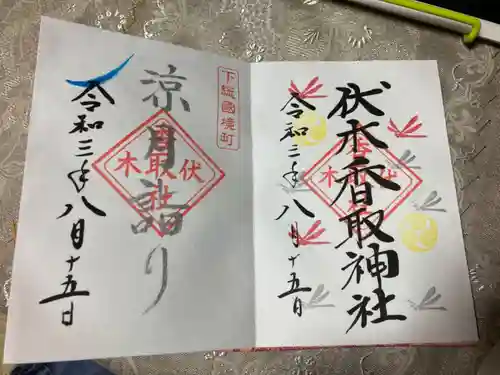 伏木香取神社
伏木
香取
社
令和三年八月十五日
下総國境町
涼月詣り
伏木
香取
社
令和三年八月十五日